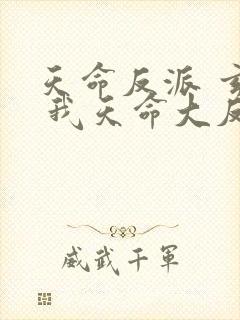 天命反派
我天命大反
威武千軍